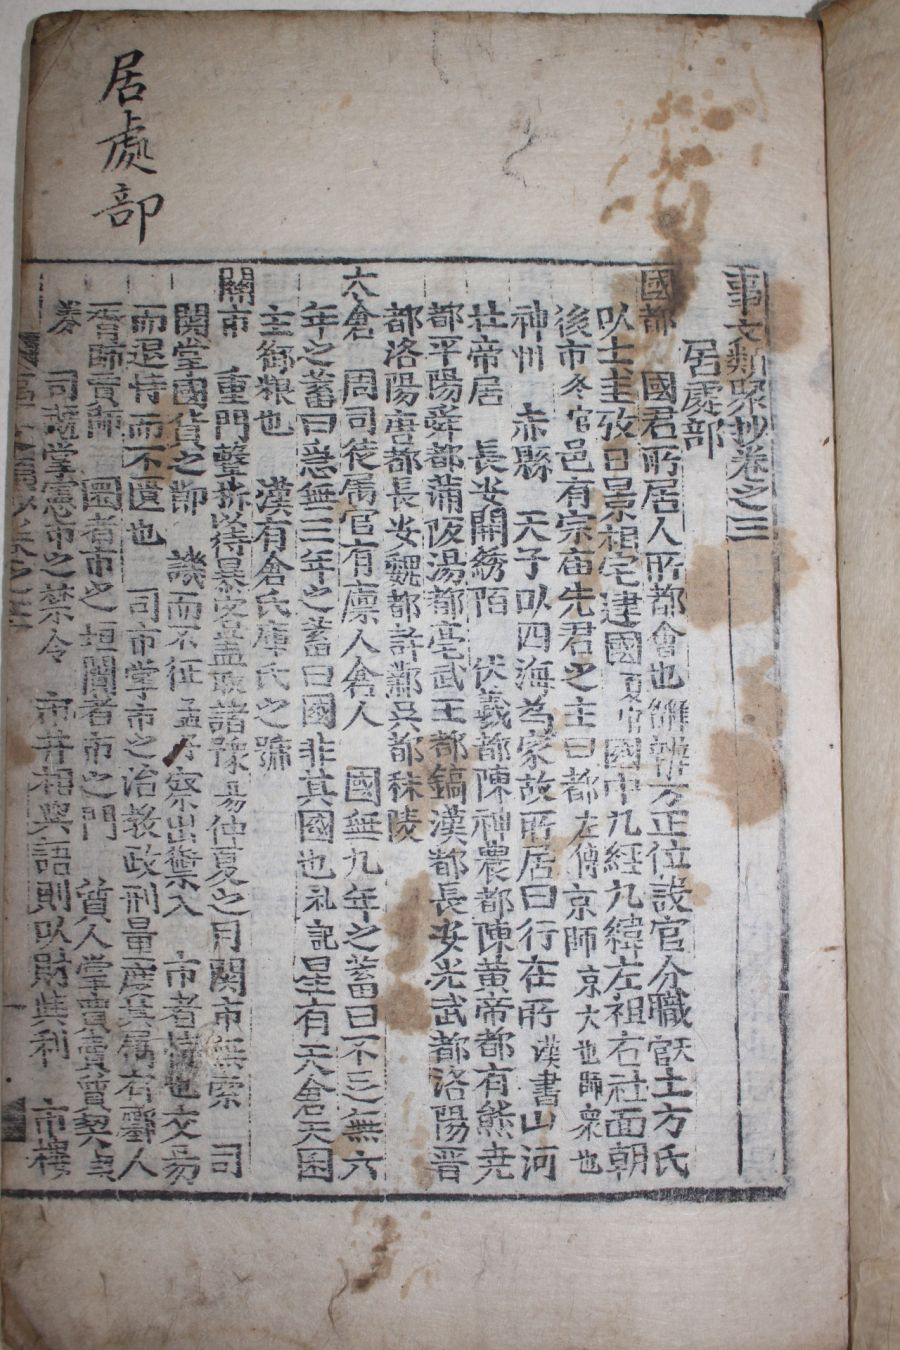 居處部
事文類聚抄卷之三
居處部
國都 國君所居人所都會也 惟辨方正位設官分職 土方氏
以土圭致日景相宅建國 國中九經九緯左祖右社面朝
後市 冬官 邑有宗庙先君之主曰都 左傳 京師 京大也師衆也
神州 赤縣 天子以四海為家故所居曰行在所 漢書 山河
壮帝居 長安開綉陌 伏羲都陳神農都陳黄帝都有熊尭
都平陽舜都蒲阪湯都亳武王都鎬漢都長安光武都洛陽晋
都洛陽唐都長安魏都許鄴吳都秣陵
六倉 周司徒属官有廩人倉人 國無九年之蓄曰不足無六
年之蓄曰急無三年之蓄曰國非其國也 礼記 星有天倉天囷
主御粮也 漢有倉氏庫氏之號
關市 重門擊柝以待暴客盖取諸豫 易 仲夏之月関市無索 司
関掌國貨之節 譏而不征 孟子 察出禦入 市者恃也交易
而退恃而不匱也 司市掌市之治教政刑量度其属有
胥師賈師 闤者市之垣闠者市之門 質人掌
券 司虣掌憲市之禁令 市井相與語則以財與利 市樓